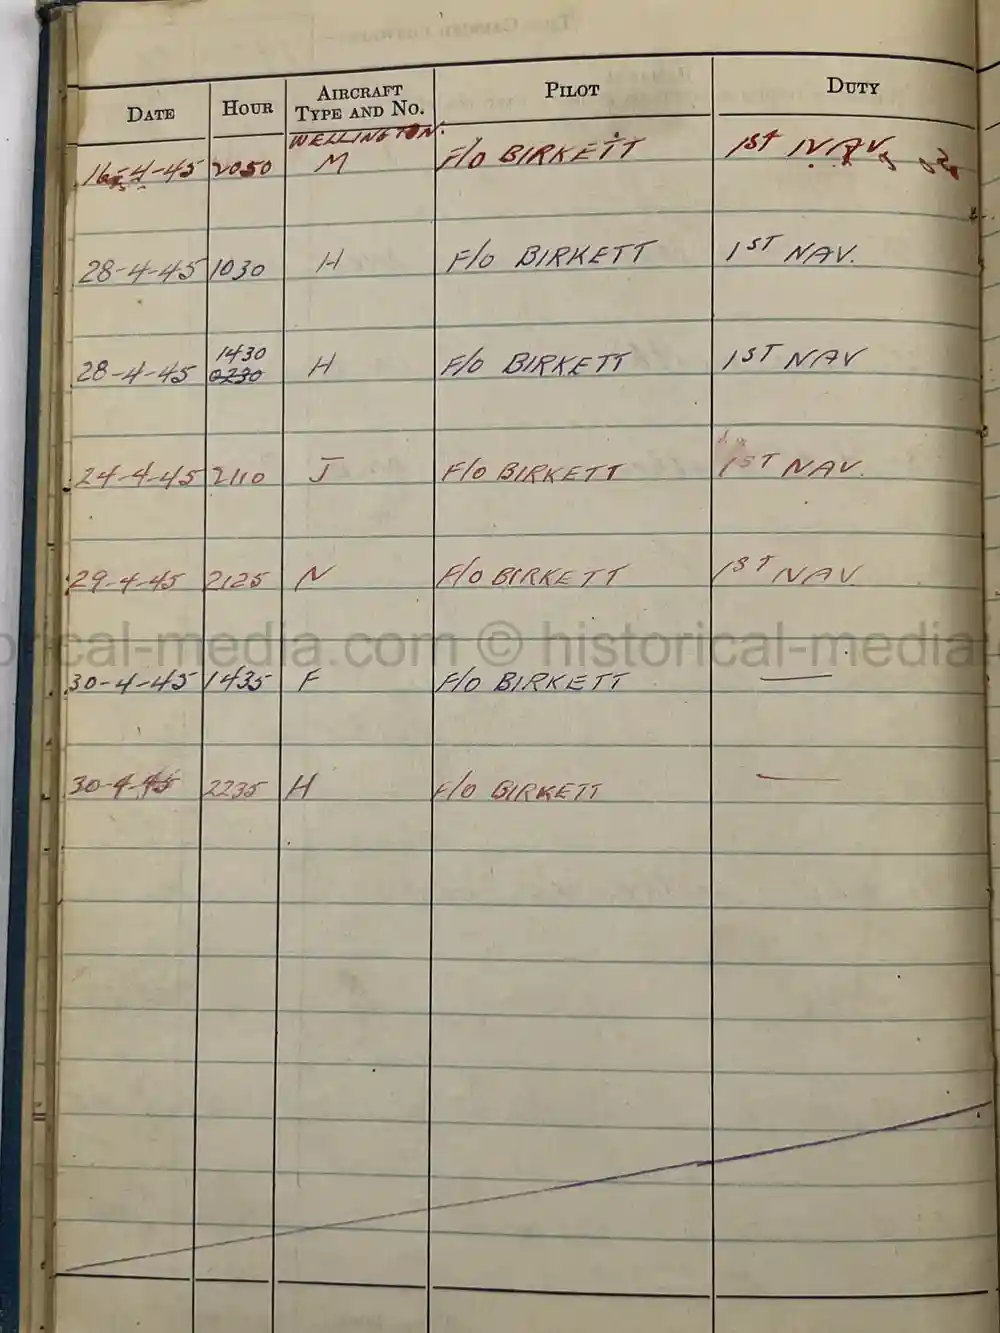 DATE HOUR AIRCRAFT TYPE AND NO. PILOT DUTY
WELLINGTON.
16-4-45 2050 M F/O BIRKETT 1ST NAV
28-4-45 1030 H F/O BIRKETT 1ST NAV.
1430
28-4-45 0230 H F/O BIRKETT 1ST NAV
24-4-45 2110 J F/O BIRKETT 1ST NAV.
29-4-45 2125 N F/O BIRKETT 1ST NAV
orical-media.com © historical-media
30-4-45 1435 F F/O BIRKETT —
30-4-45 2235 H F/O BIRKETT —